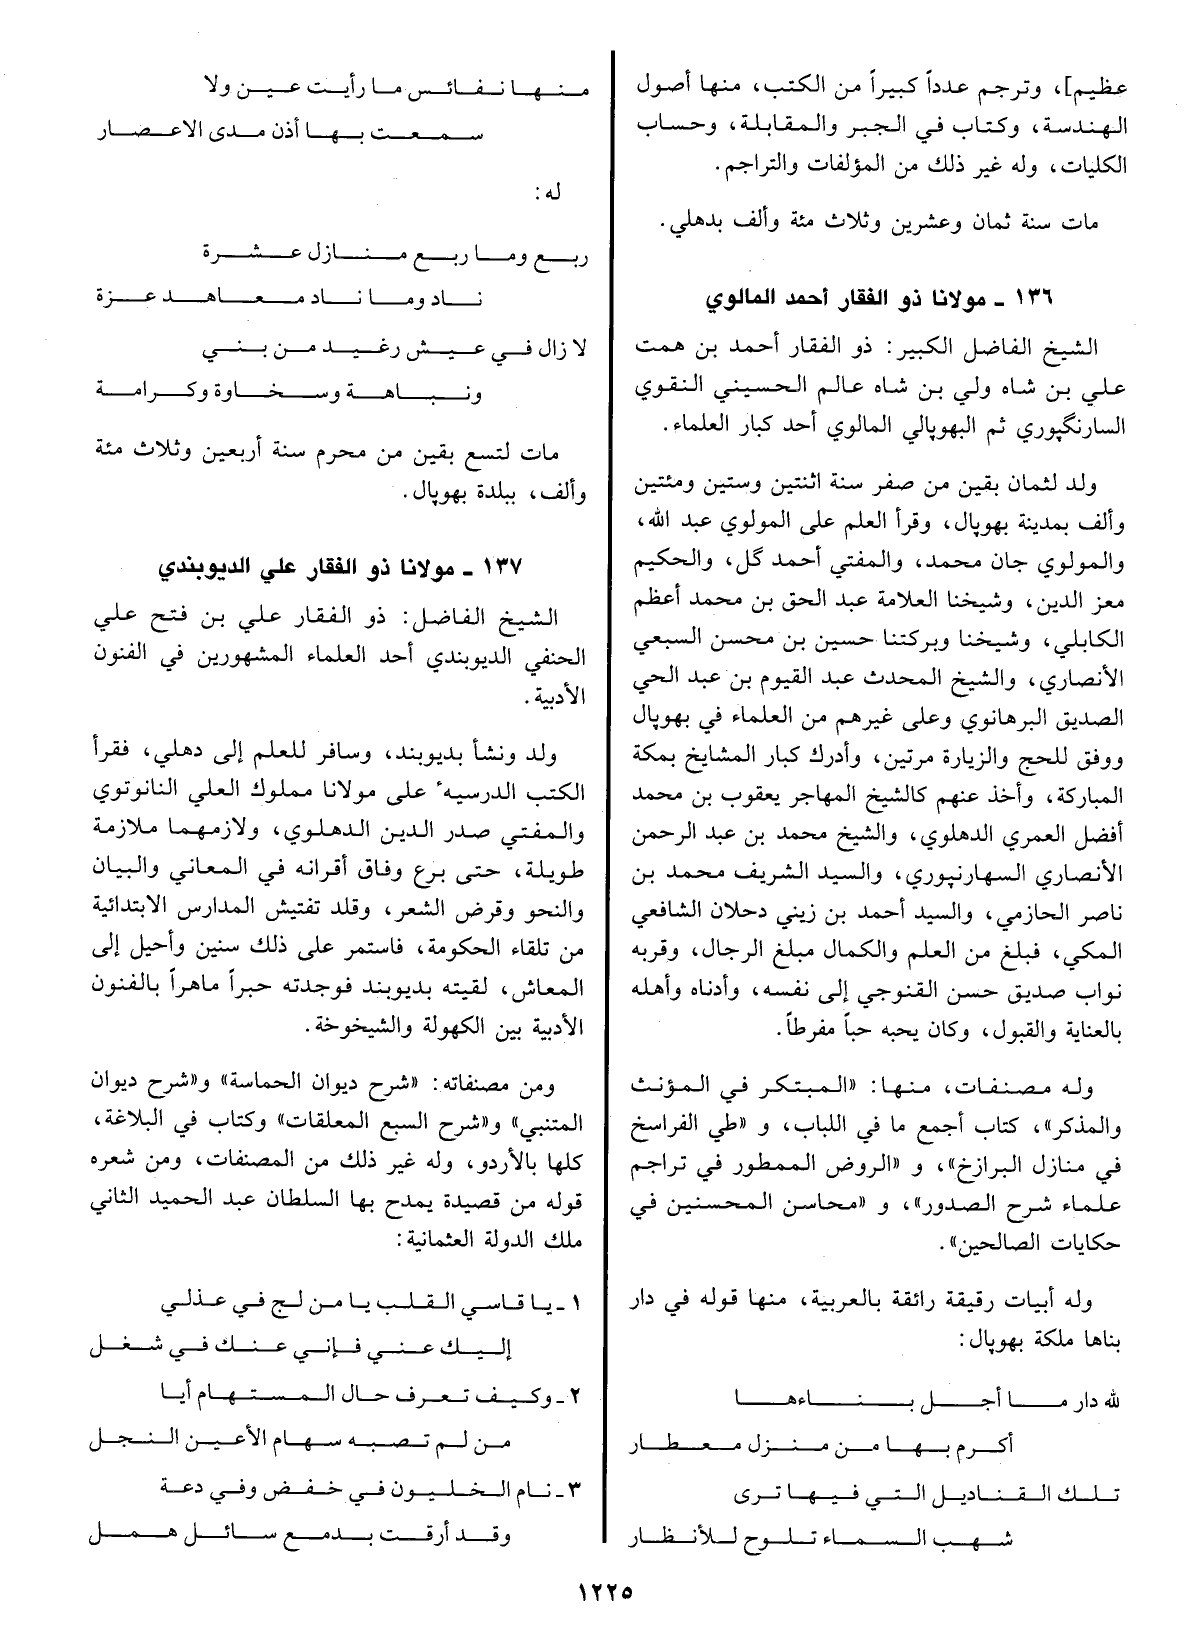 عظيم]، وترجم عدداً كبيراً من الكتب، منها أصول
الهندسة، وكتاب في الجبر والمقابلة، وحساب
الكليات، وله غير ذلك من المؤلفات والتراجم.
مات سنة ثمان وعشرين وثلاث مئة وألف بدهلي.
١٣٦ ـ مولانا ذو الفقار أحمد المالوي
الشيخ الفاضل الكبير: ذو الفقار أحمد بن همت
علي بن شاه ولي بن شاه عالم الحسيني النقوي
السارنكپوري ثم البهوپالي المالوي أحد كبار العلماء.
ولد لثمان بقين من صفر سنة اثنتين وستين ومئتين
وألف بمدينة بهوپال، وقرأ العلم على المولوي عبد الله،
والمولوي جان محمد، والمفتي أحمد گل، والحكيم
معز الدين، وشيخنا العلامة عبد الحق بن محمد أعظم
الكابلي، وشيخنا وبركتنا حسين بن محسن السبعي
الأنصاري، والشيخ المحدث عبد القيوم بن عبد الحي
الصديق البرهانوي وعلى غيرهم من العلماء في بهوپال
ووفق للحج والزيارة مرتين، وأدرك كبار المشايخ بمكة
المباركة، وأخذ عنهم كالشيخ المهاجر يعقوب بن محمد
أفضل العمري الدهلوي، والشيخ محمد بن عبد الرحمن
الأنصاري السهارنپوري، والسيد الشريف محمد بن
ناصر الحازمي، والسيد أحمد بن زيني دحلان الشافعي
المكي، فبلغ من العلم والكمال مبلغ الرجال، وقربه
نواب صديق حسن القنوجي إلى نفسه، وأدناه وأهله
بالعناية والقبول، وكان يحبه حباً مفرطاً.
وله مصنفات، منها: «المبتكر في المؤنث
والمذكر»، كتاب أجمع ما في اللباب، و «طي الفراسخ
في منازل البرازخ»، و «الروض الممطور في تراجم
علماء شرح الصدور»، و «محاسن المحسنين في
حكايات الصالحين».
وله أبيات رقيقة رائقة بالعربية، منها قوله في دار
بناها ملكة بهوپال:
لله دار ما أجل بناءها
أكرم بها من منزل معطار
تلك القناديل التي فيها ترى
شهب السماء تلوح للأنظار
منها نفائس ما رأيت عين ولا
سمعت بها أذن مدى الاعصار
له:
ربع وما ربع منازل عشرة
ناد وما ناد معاهد عزة
لا زال في عيش رغيد من بني
ونباهة وسخاوة وكرامة
مات لتسع بقين من محرم سنة أربعين وثلاث مئة
وألف، ببلدة بهوپال.
١٣٧ ـ مولانا ذو الفقار علي الديوبندي
الشيخ الفاضل: ذو الفقار علي بن فتح علي
الحنفي الديوبندي أحد العلماء المشهورين في الفنون
الأدبية.
ولد ونشأ بديوبند، وسافر للعلم إلى دهلي، فقرأ
الكتب الدرسية على مولانا مملوك العلي النانوتوي
والمفتي صدر الدين الدهلوي، ولازمهما ملازمة
طويلة، حتى برع وفاق أقرانه في المعاني والبيان
والنحو وقرض الشعر، وقلد تفتيش المدارس الابتدائية
من تلقاء الحكومة، فاستمر على ذلك سنين وأحيل إلى
المعاش، لقيته بديوبند فوجدته حبراً ماهراً بالفنون
الأدبية بين الكهولة والشيخوخة.
ومن مصنفاته: «شرح ديوان الحماسة» و«شرح ديوان
المتنبي» و«شرح السبع المعلقات» وكتاب في البلاغة،
كلها بالأردو، وله غير ذلك من المصنفات، ومن شعره
قوله من قصيدة يمدح بها السلطان عبد الحميد الثاني
ملك الدولة العثمانية:
١ ـ يا قاسي القلب يا من لج في عذلي
إليك عني فإني عنك في شغل
٢ ـ وكيف تعرف حال المستهام أيا
من لم تصبه سهام الأعين النجل
٣ ـ نام الخليون في خفض وفي دعة
وقد أرقت بدمع سائل همل
١٢٢٥